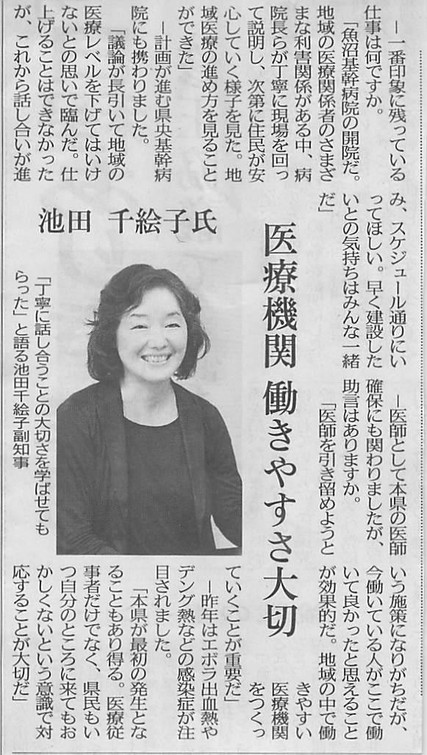 ―一番印象に残っている
仕事は何ですか。
「魚沼基幹病院の開院だ。
地域の医療関係者のさまざ
まな利害関係がある中、病
院長らが丁寧に現場を回っ
て説明し、次第に住民が安
心していく様子を見た。地
域医療の進め方を見ること
ができた」
―計画が進む県央基幹病
院にも携わりました。
「議論が長引いて地域の
医療レベルを下げてはいけ
ないとの思いで臨んだ。仕
上げることはできなかった
が、これから話し合いが進
み、スケジュール通りにい
ってほしい。早く建設した
いとの気持ちはみんな一緒
だ」
医療機関 働きやすさ大切
池田 千絵子氏
「丁寧に話し合うことの大切さを学ばせても
らった」と語る池田千絵子副知事
―医師として本県の医師
確保にも関わりましたが、
助言はありますか。
「医師を引き留めようと
いう施策になりがちだが、
今働いている人がここで働
いて良かったと思えること
が効果的だ。地域の中で働
きやすい
医療機関
をつくっ
ていくことが重要だ」
―昨年はエボラ出血熱や
デング熱などの感染症が注
目されました。
「本県が最初の発生とな
ることもあり得る。医療従
事者だけでなく、県民もい
つ自分のところに来てもお
かしくないという意識で対
応することが大切だ」